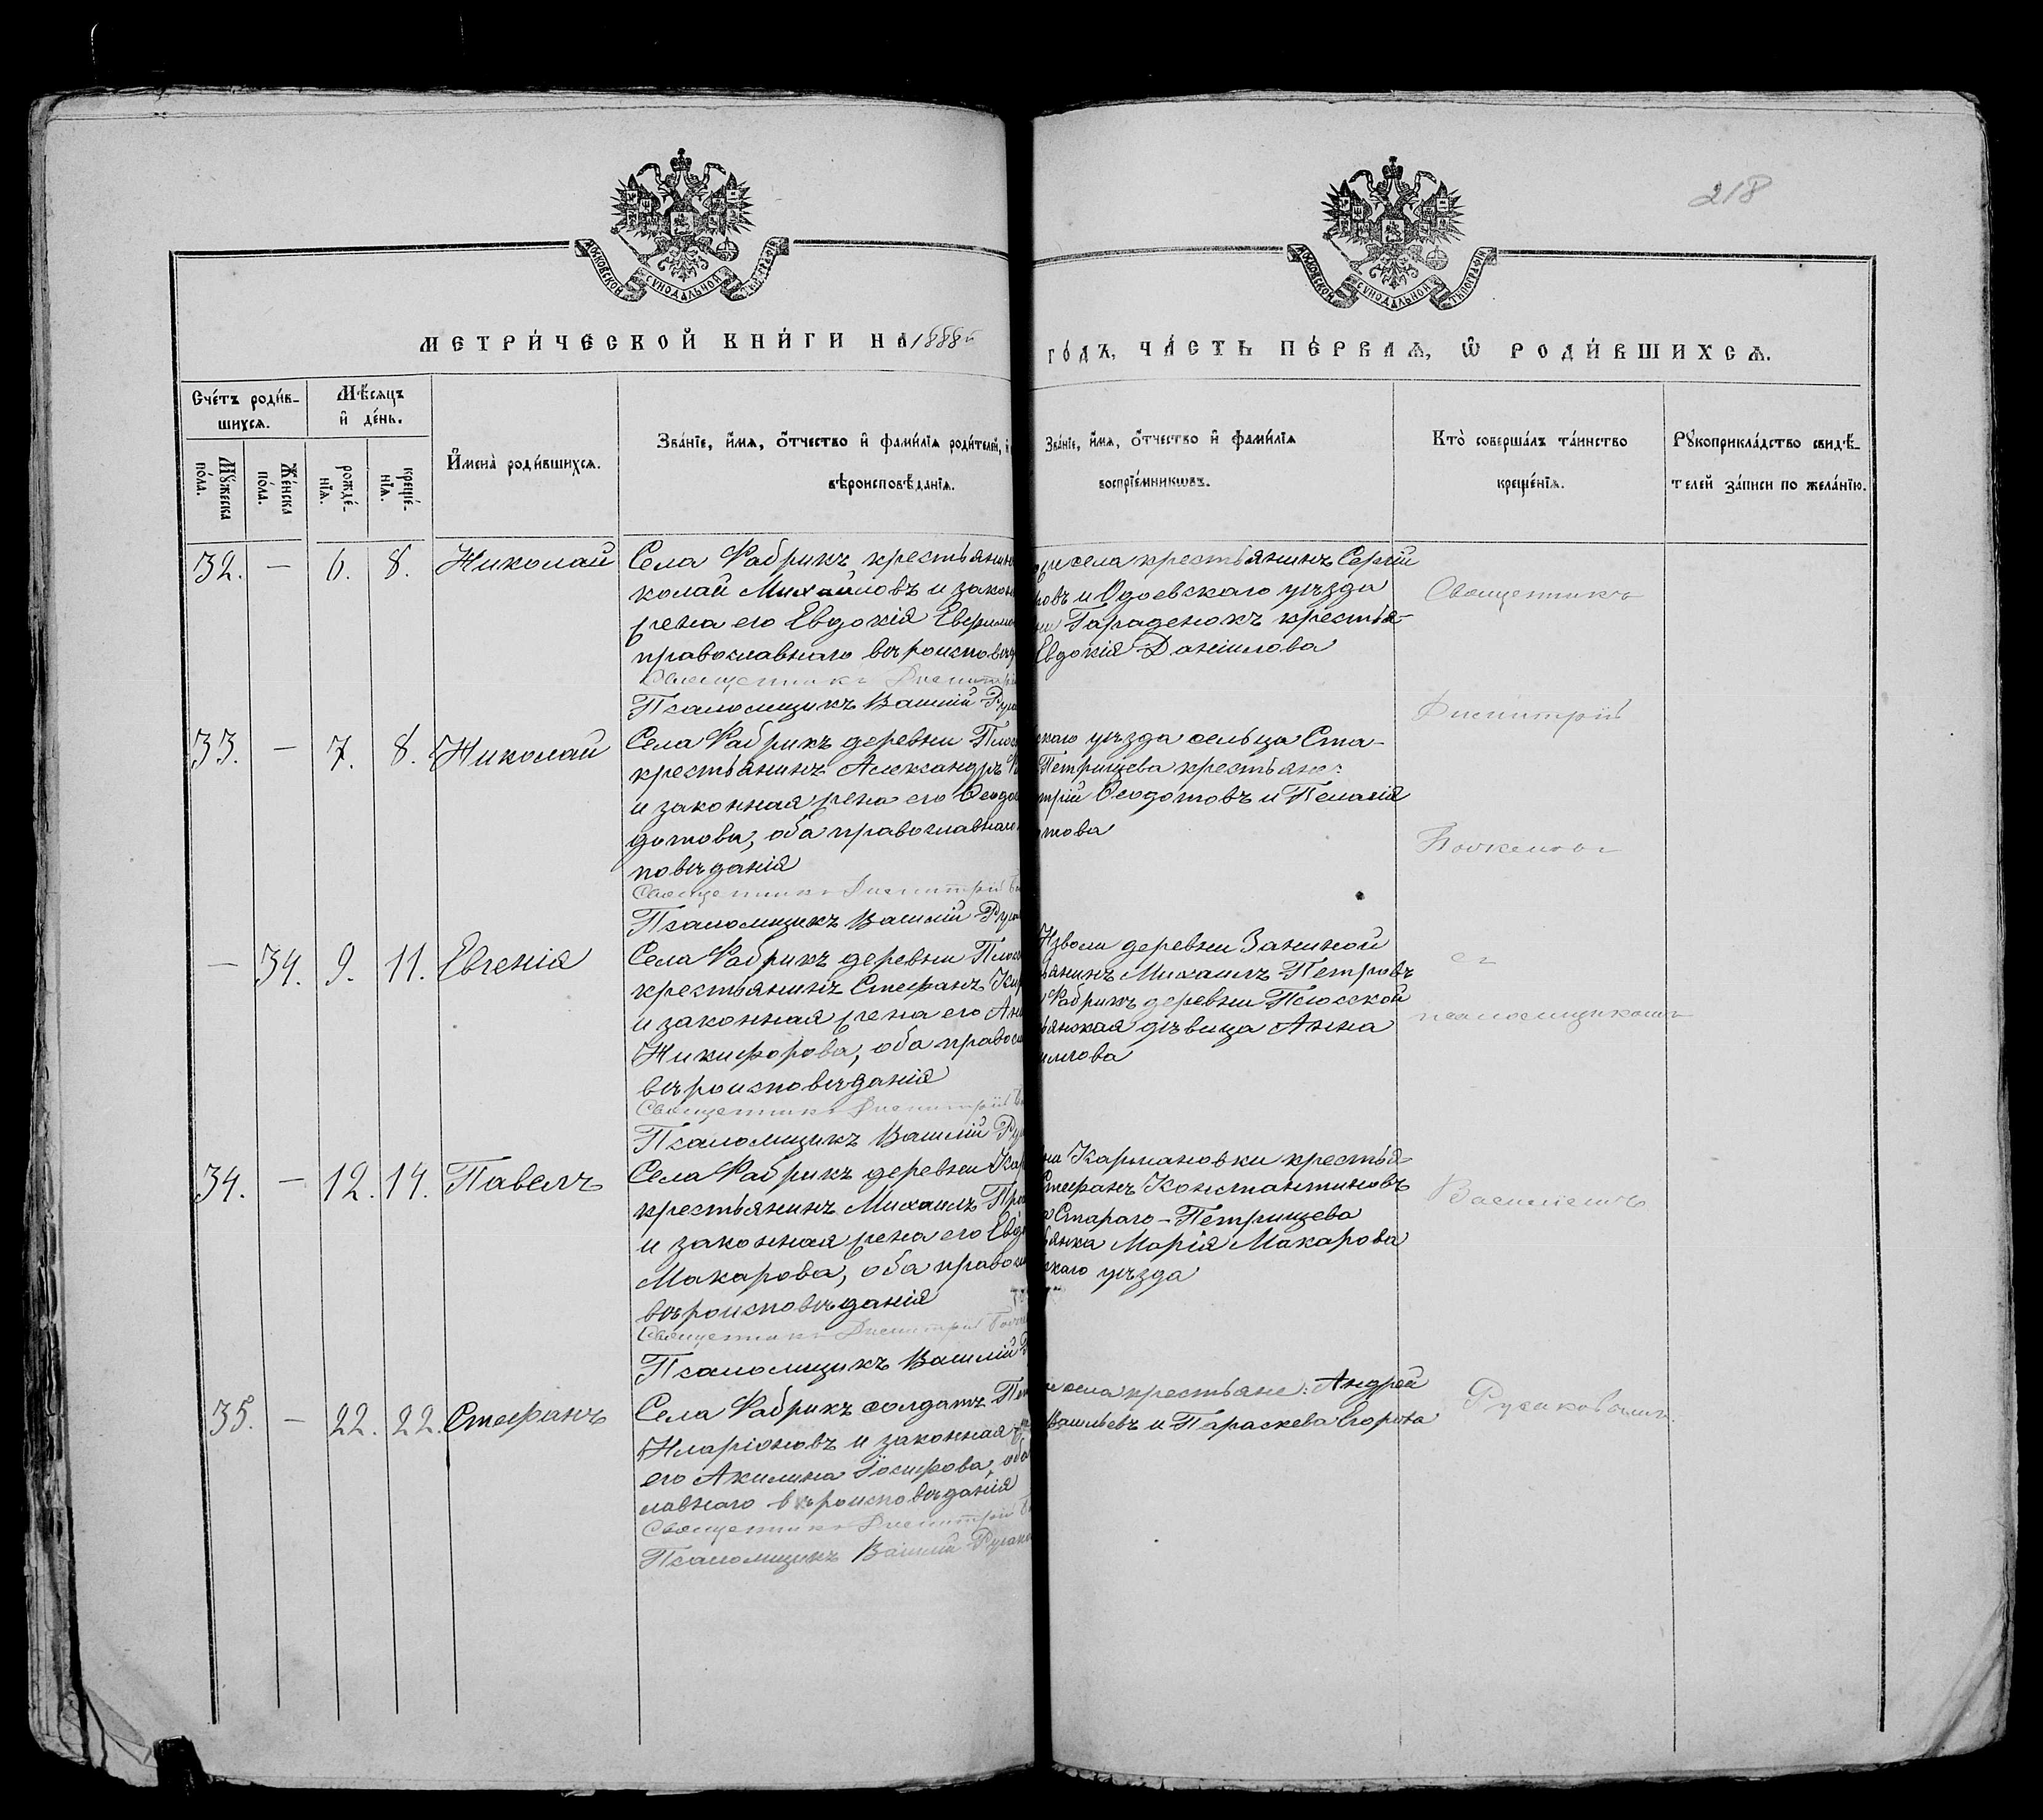 218
МОСКОВСКОЙ СѴНОДАЛЬНОЙ ТѴПОГРАФІИ
МОСКОВСКОЙ СѴНОДАЛЬНОЙ ТѴПОГРАФІИ
МЕТРИ́ЧЕСКОЙ КНИ́ГИ НА 1888й
ГО́ДЪ, ЧА́СТЬ ПЕ́РВАѦ, Ѽ РОДИ́ВШИХСѦ.
Сче́тъ роди́в-
шихсѧ.
Мѣ́сѧцъ
и҆ де́нь.
Мꙋ́жеска
по́ла.
Же́нска
по́ла.
рожде́-
нїѧ.
креще́-
нїѧ.
И҆мена̀ роди́вшихсѧ.
Зва́нїе, и҆́мѧ, ѻ҆́тчество и҆ фами́лїѧ роди́телей, и҆
вѣроисповѣ́данїѧ.
Зва́нїе, и҆́мѧ, ѻ҆́тчество и҆ фами́лїѧ
воспрїе́мникѡвъ.
Кто̀ соверша́лъ та́инство
креще́нїѧ.
Рꙋкоприкла́дство свидѣ́-
телей за́писи по жела́нїю.
32. — 6. 8. Николай
Села Фабрикъ крестьянинъ
колай Михайловъ и закон
жена его Евдокія Евфимо
православнаго вѣроисповѣд
Священникъ Димитрі
Псаломщикъ Василій Руса
села крестьянинъ Сергій
ровъ и Одоевскаго уѣзда
ни Гараденокъ крестья-
Евдокія Даніилова
33. — 7. 8. Николай
Села Фабрикъ деревни Плос
крестьянинъ Александръ
и законная жена его Ѳеодо
дотова, оба православнаго
повѣданія
Священникъ Димитрій
Псаломщикъ Василій Руса
скаго уѣзда сельца Ста-
Петрищева крестьяне:
трій Ѳеодотовъ и Пелагія
отова
— 34. 9. 11. Евгенія
Села Фабрикъ деревни Плос
крестьянинъ Стефанъ Кир
и законная жена его Ан
Никифорова, оба правосл
вѣроисповѣданія
Священникъ Димитрій
Псаломщикъ Василій Ру
Изволи деревни Заниной
янинъ Михаилъ Петровъ
Фабрикъ деревни Плосской
янская дѣвица Анна
34. — 12. 14. Павелъ
Села Фабрикъ деревни Кар
крестьянинъ Михаилъ Про
и законная жена его Евд
Макарова, оба правосл
вѣроисповѣданія
Священникъ Димитрій
Псаломщикъ Василій
ни Кармановки крестья-
Стефанъ Константиновъ
Стараго-Петрищева
янка Марія Макарова
скаго уѣзда
35. — 22. 22. Стефанъ
Села Фабрикъ солдатъ
Иларіоновъ и законная
его Акилина Іосифова, оба
славнаго вѣроисповѣданія
Священникъ Димитрій
Псаломщикъ Василій Русако
села крестьяне: Андрей
Васильевъ и Параскева Егорова
Священникъ
Димитрій
съ
псаломщикомъ
Василіемъ
Русаковымъ.